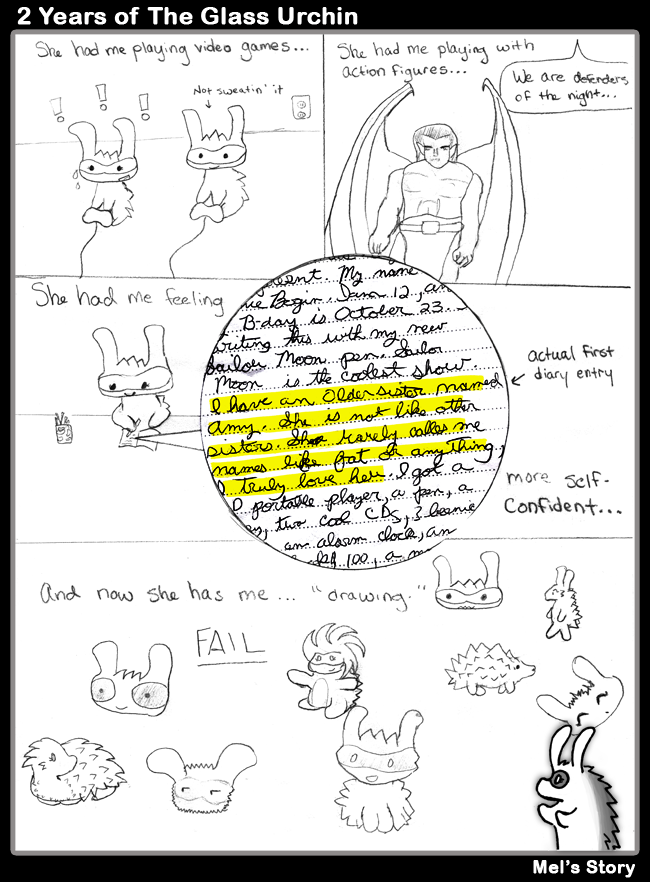 2 Years of The Glass Urchin
She had me playing video games...
Not sweatin' it
! ! !
She had me playing with
action figures...
We are defenders
of the night...
She had me feeling
My name
Begin. Jan 12, an
B-day is October 23.
writing this with my new
Sailor Moon pen. Sailor
Moon is the coolest show.
I have an Older sister named
Amy. She is not like other
sisters. She rarely calls me
names like fat or anything,
I truly love her. I got a
portable player, a pen, a
two cool CDs, 3 beanie
an alarm clock, an
100, a
actual first
diary entry
more self-
confident...
And now she has me... "drawing."
FAIL
Mel's Story